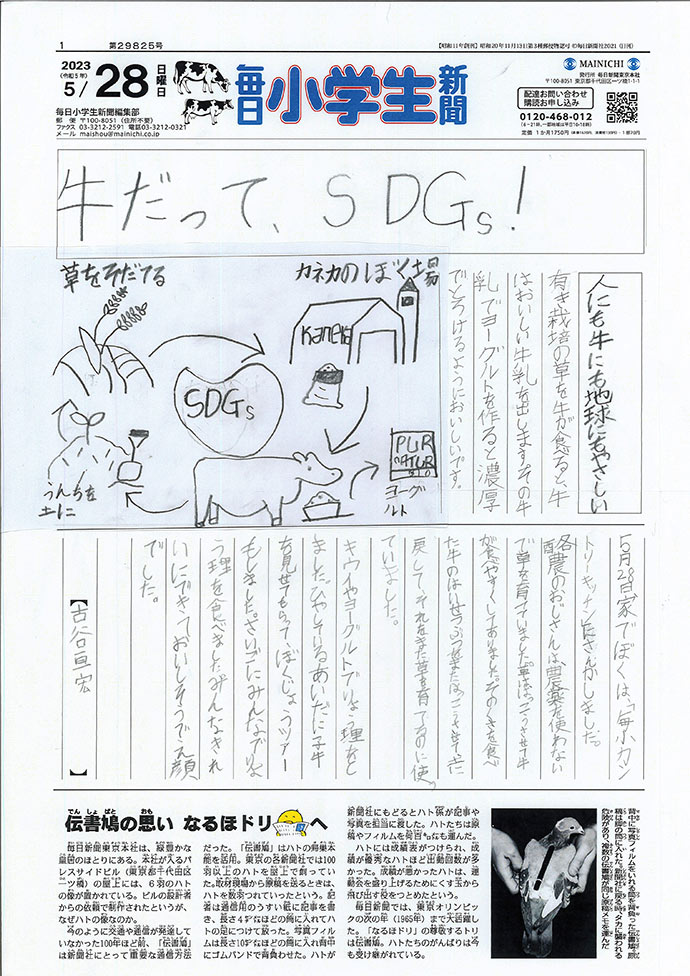 1
第29825号
【昭和11年創刊】昭和20年11月13日第3種郵便物認可 ©毎日新聞社2021 (日刊)
2023
(令和5年)
5/28
日曜日
毎日小学生新聞
毎日小学生新聞編集部
郵 便 〒100-8051(住所不要)
ファクス 03-3212-2591 電話03-3212-0321
メール maishou@mainichi.co.jp
MAINICHI
発行所 毎日新聞東京本社
〒100-8051 東京都千代田区一ツ橋1-1-1
配達お問い合わせ
購読お申し込み
0120-468-012
定価 1か月1750円
牛だって、SDGs!
草をそだてる
カネカのぼく場
Kaneka
SDGs
PUR
NATUR
ヨーグルト
うんちを
土に
人にも牛にも地球にもやさしい
有き栽培の草を牛が食べると、牛
はおいしい牛乳を出します。その牛
乳でヨーグルトを作ると濃厚
でとろけるようにおいしいです。
5月28日家でぼくは、「毎小カン
トリーキッチン」にさんかしました。
酪農のおじさんは、農薬を使わない
で草を育てていました。草ははっこうさせて牛
が食べやすくしてありました。そのくさを食べ
た牛のはいせつぶつをまたはっこうさせて土に
戻して、それをまた草を育てるのに使っ
ていました。
キウイやヨーグルトでりょう理をし
ました。ひやしているあいだに子牛
を見せてもらって、ぼくじょうツアー
もしました。さいごにみんなでりょ
う理を食べました。みんなきれ
いにできておいしそうでえ顔
でした。
【古谷亘宏】
伝書鳩の思い なるほドリへ
毎日新聞東京本社は、緑豊かな
皇居のほとりにある。本社が入るパ
レスサイドビル(東京都千代田区
一ツ橋)の屋上には、6羽のハト
の像が置かれている。ビルの設計者
からの依頼で制作されたというが、
なぜハトの像なのか。
今のように交通や通信が発達して
いなかった100年ほど前、「伝書鳩」
は新聞社にとって重要な通信方法
だった。「伝書鳩」はハトの帰巣本
能を活用。東京の各新聞社では100
羽以上のハトを屋上で飼っていた。
取材現場から原稿を送るときは、
ハトを数羽つれていったという。記
者は通信用のうすい紙に記事を書
き、長さ4㌢ほどの筒に入れてハ
トの足につけて放った。写真フィル
ムは長さ10㌢ほどの筒に入れ背中
にゴムバンドで背負わせた。ハトが
新聞社にもどるとハト係が記事や
写真を担当に渡した。ハトたちは原
稿やフィルムを何百㌔も運んだ。
ハトには成績表がつけられ、成
績が優秀なハトほど出動回数が多
かった。成績が悪かったハトは、運
動会を盛り上げるためにくす玉から
飛び出す役をつとめたという。
毎日新聞では、東京オリンピッ
クの次の年(1965年)まで大活躍し
た。「なるほドリ」の尊敬するトリ
は伝書鳩。ハトたちのがんばりは今
も受け継がれている。